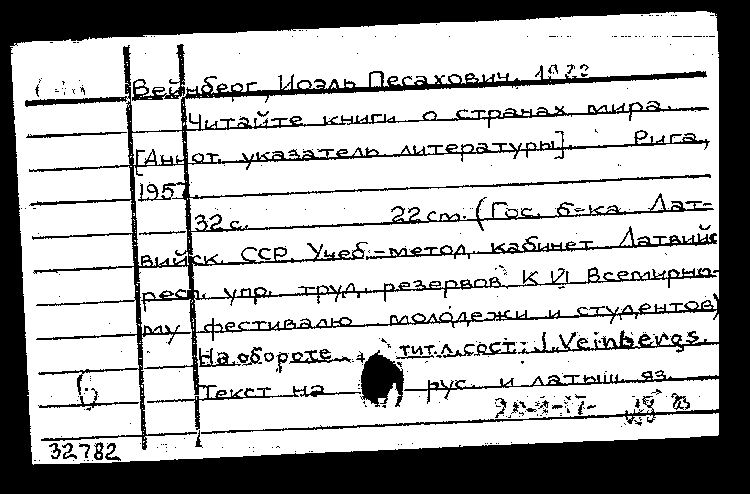 Вейнберг, Иоэль Песахович, 1922
Читайте книги о странах мира.
[Аннот. указатель литературы]. Рига,
1957.
32 с. 22 cm. (Гос. б-ка Лат-
вийск. ССР. Учеб.-метод. кабинет Латвийс
респ. упр. труд. резервов К VI Всемирно-
му фестивалю молодежи и студентов)
На обороте тит. л. сост: J. Veinbergs.
Текст на рус. и латыш. яз.
б
32782